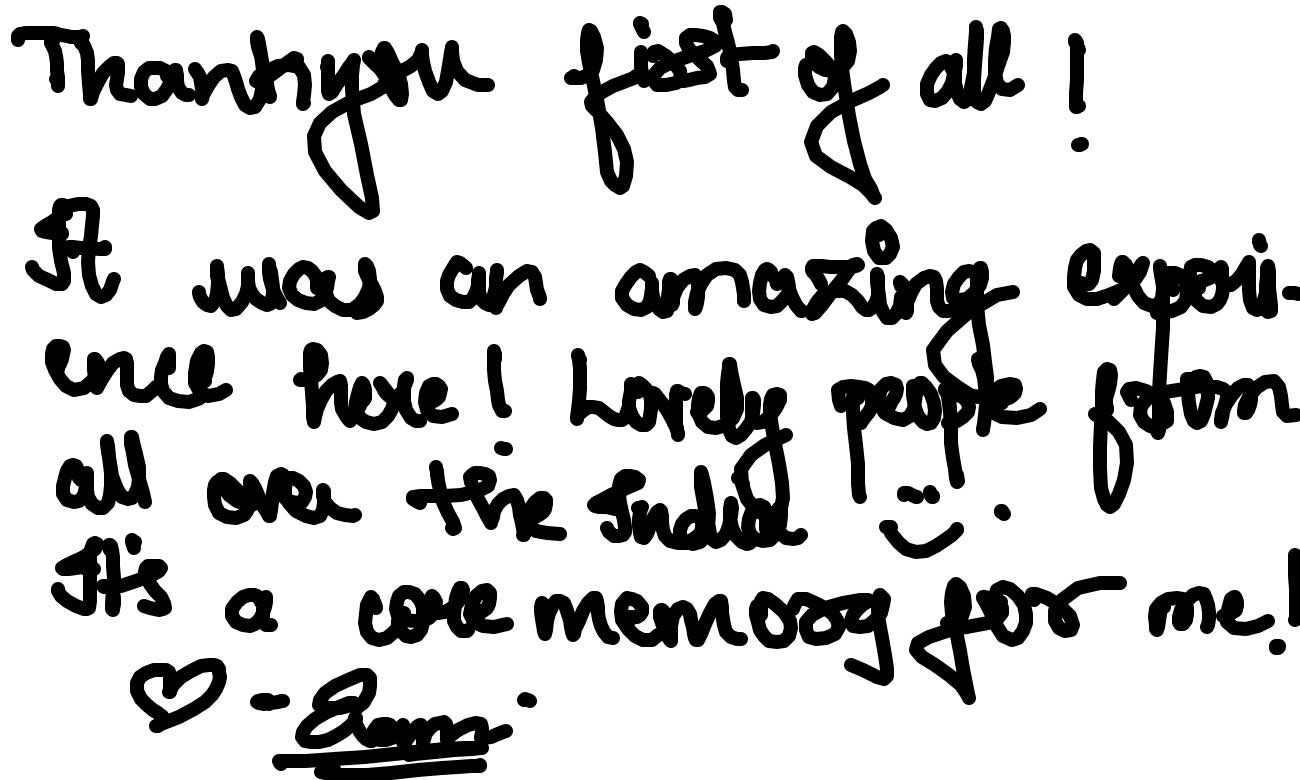 Thankyou first of all!
It was an amazing experi-
ence here! Lovely people from
all over the India
It's a core memory for me!